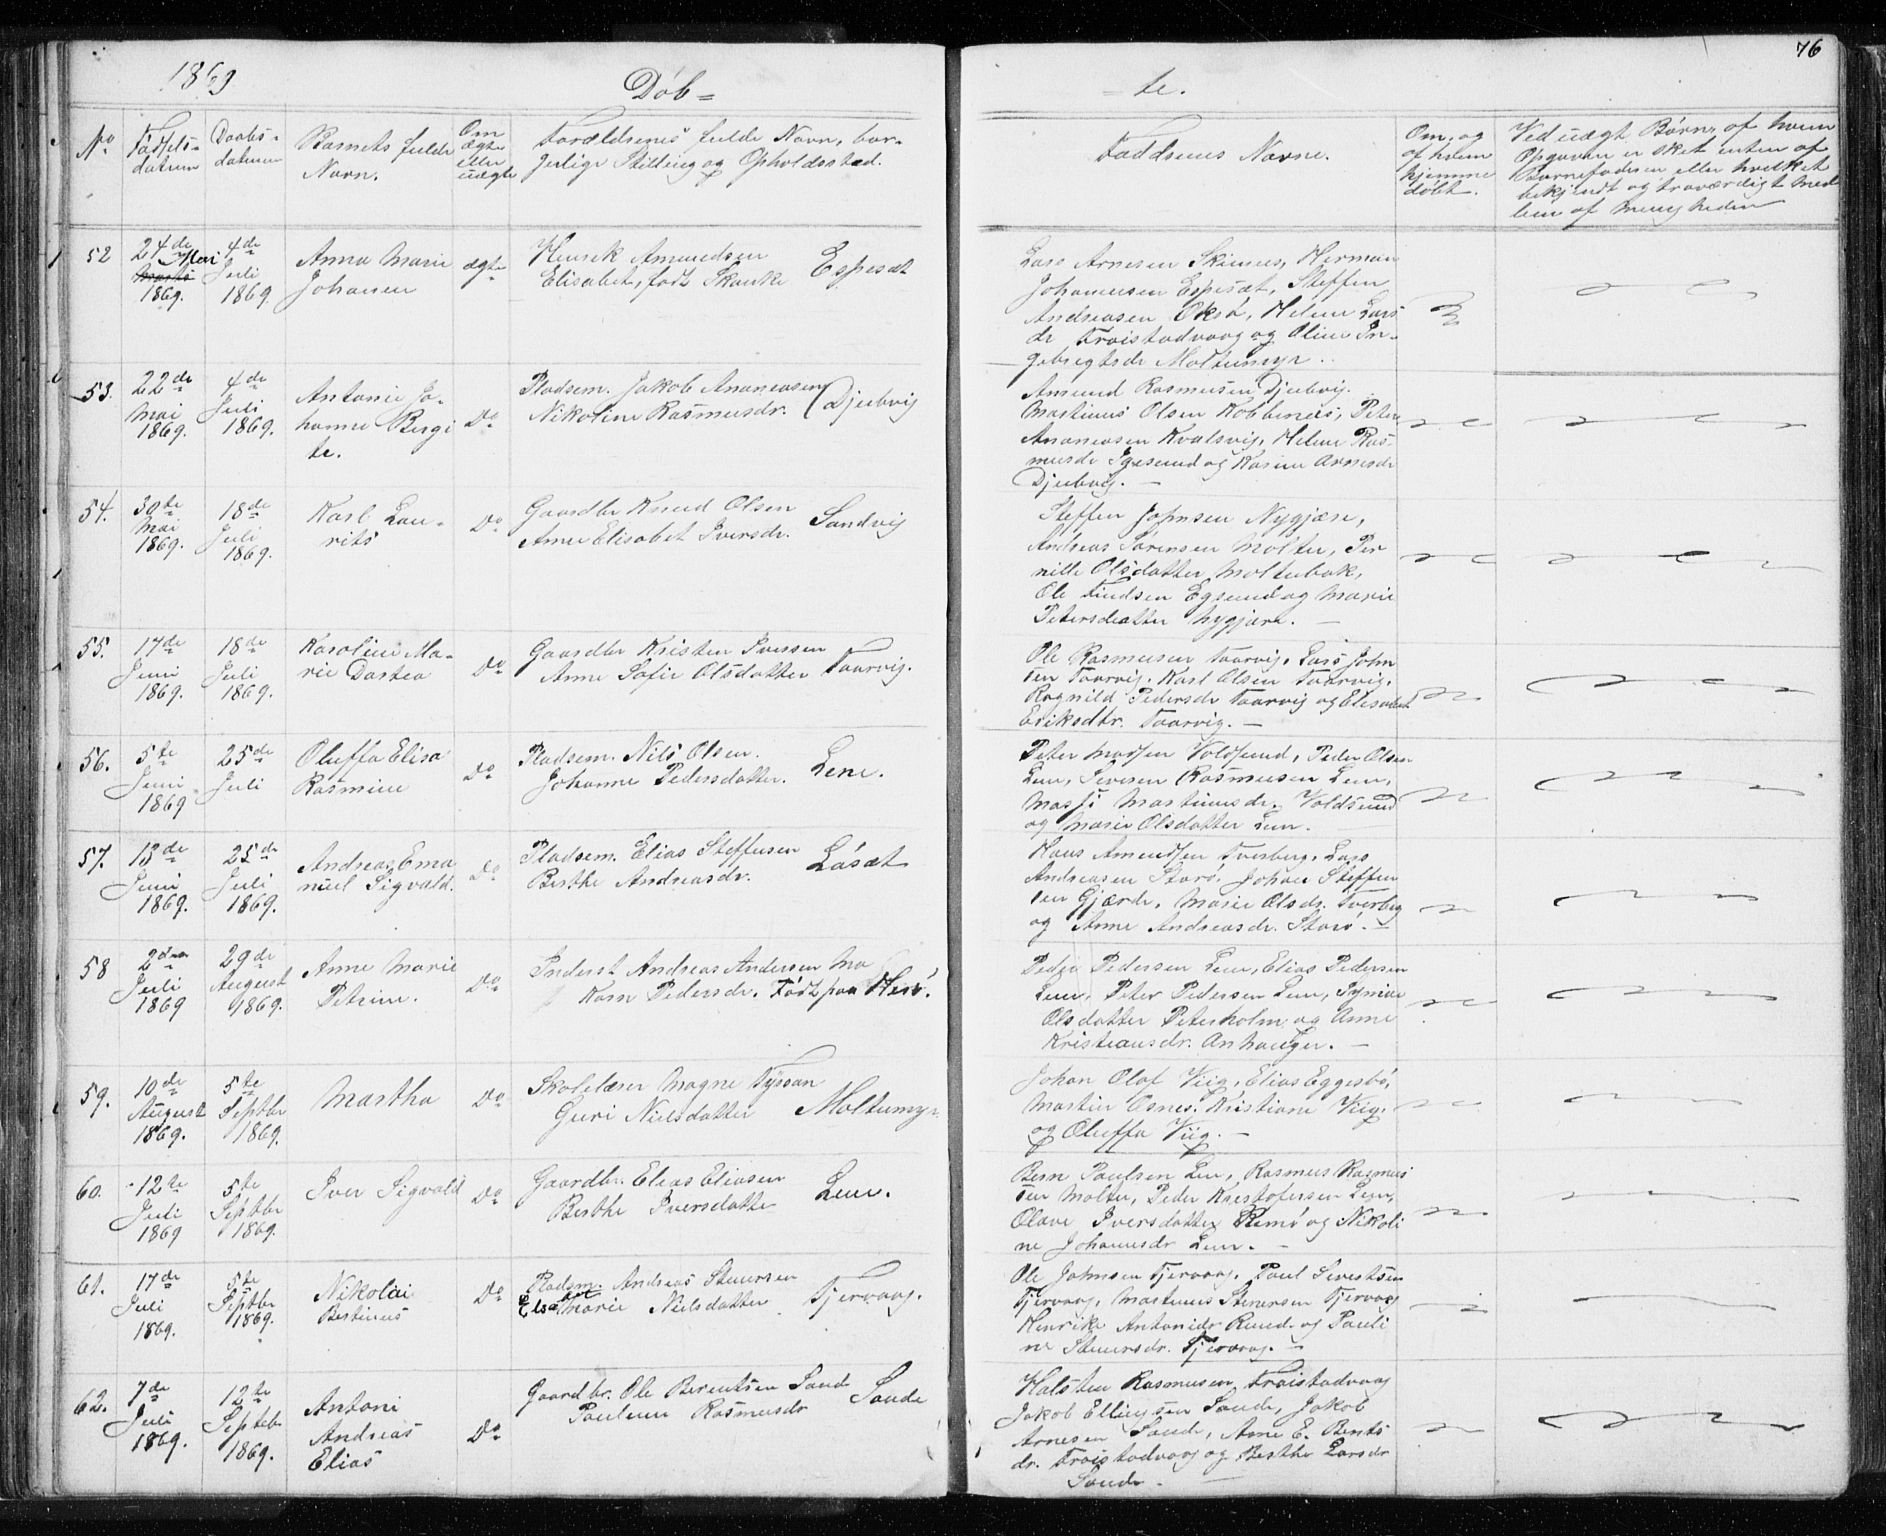 1869
Døb=
=te.
76
No
Fødsels-
datum
Daabs-
datum
Barnets fulde
Navn.
Om
ægte
eller
uægte
Forældrenes fulde Navn, bor-
gerlige Stilling og Opholdssted.
Faddernes Navne.
Om, og
af hvem
hjemme
døbt.
Ved uægt Børn, af hvem
Opgaven er sket enten af
Barnefaderen eller hvilket
bekjendt og troværdigt Med
lem af Menigheden
52
24de Mai
1869.
4de
Juli
1869.
Anna Marie
Johanne
ægte
Henrik Amundsen
Elisabet, født Skanke
Espesæt
Lars Arnesen Skinnes, Herman
Johannesen Espesæt, Steffen
Andreasen Oksø, Helene Lars
dr Fraistadvaag og Oline In-
gebrigtsdr Moltumyr.
53.
22de
Mai
1869.
4de
Juli
1869.
Antonie Jo-
hanne Bergi
te.
Do
Pladsm. Jakob Ananeasen
Nikoline Rasmusdr.
Djubvig
Amund Rasmusen Djubvig.
Martinus Olsen Kobbenes, Peter
Ananeasen Kvalsvig, Helene Ras-
musdr Igesund og Karine Arnesdr
Djubvig. —
54.
30te
Mai
1869.
18de
Juli
1869.
Karl Lau-
rits
Do
Gaardbr Knud Olsen
Anne Elisabet Iversdr.
Sandvig
Steffen Johnsen Nygjære,
Andreas Sørensen Molter, Per
nille Olsdatter Moltubak,
Ole Knudsen Egsund og Marie
Petersdatter Nygjære. —
55.
17de
Juni
1869.
18de
Juli
1869.
Karoline Ma-
rie Dortea
Do
Gaardbr Kristen Iversen
Anne Sofie Olsdatter
Taarvig.
Ole Rasmusen Taarvig, Lars John
sen Taarvig, Karl Olsen Taarvig,
Ragnild Pedersdr Taarvig og Elisabet
Eriksdtr. Taarvig. —
56.
5te
Juni
1869
25de
Juli
Oluffa Elisa
Rasmine
Do
Pladsem. Nils Olsen.
Johanne Pedersdatter.
Leine.
Peter Madsen Voldsund, Peder Olsen
Leine, Iversen Rasmusen Leine,
Massi Martinusdr. Voldsund
og Marie Olsdatter Leine.
57.
13de
Juni
1869.
25de
Juli
1869.
Andreas Ema
nuel Sigvald.
Do
Pladsem. Elias Steffensen
Berthe Andreasdr.
Løsæt
Hans Amundsen Tverberg, Lars
Andreasen Storø, Johan Steffen
sen Gjærde, Marie Olsdr. Tverberg
og Anne Andreasdr. Storø. —
58
2den
Juli
1869
29de
August
1869.
Anne Marie
Petrine.
Do
Inderst Andreas Andersen
Karn Pedersdr. Født paa Herø.
Peder Pedersen Leine, Elias Pedersen
Leine, Peter Pedersen Leine,
Olsdatter Peterholm og Anne
Kristiansdr. Anhauger. —
59.
10de
August
1869.
5te
Septbr
1869.
Martha
Do
Skolelærer Magne Tyssan
Guri Nielsdatter
Moltumyr
Johan Olaf Viig, Elias Eggesbø,
Martin Osnes, Kristiane Viig.
og Oluffa Viig. —
60.
12te
Juli
1869
5te
Septbr
1869.
Iver Sigvald
Do
Gaardbr. Elias Eliasen
Berthe Iversdatter
Leine.
Bern Paulsen Leine, Rasmus Rasmus
sen Molter, Peder Kristofersen Leine,
Olave Iversdatter Remø og Nikoli
ne Johannesdr Leine. —
61.
17de
Juli
1869.
5te
Septbr
1869.
Nikolai
Bertinus
Do
Pladsm. Andreas Stenersen
Marie Nielsdatter
Tjervaag.
Ole Johnsen Tjervaag, Paul Sivertsen
Tjervaag, Martinus Stenersen Tjervaag
Henrike Antonidr Rund. og Pauli
ne Stenersdr. Tjervaag. —
62.
7de
Juli
1869.
12te
Septbr
1869.
Antoni
Andreas
Elias
Do
Gaardbr. Ole Berentsen Sande
Pauline Rasmusdr
Sande
Halsten Rasmusen Fraistadvaag
Jakob Ellingsen Sande, Jakob
Arnesen Sande, Anne E. Bents
dr. Fraistadvaag og Berthe Larsdr
Sande. —